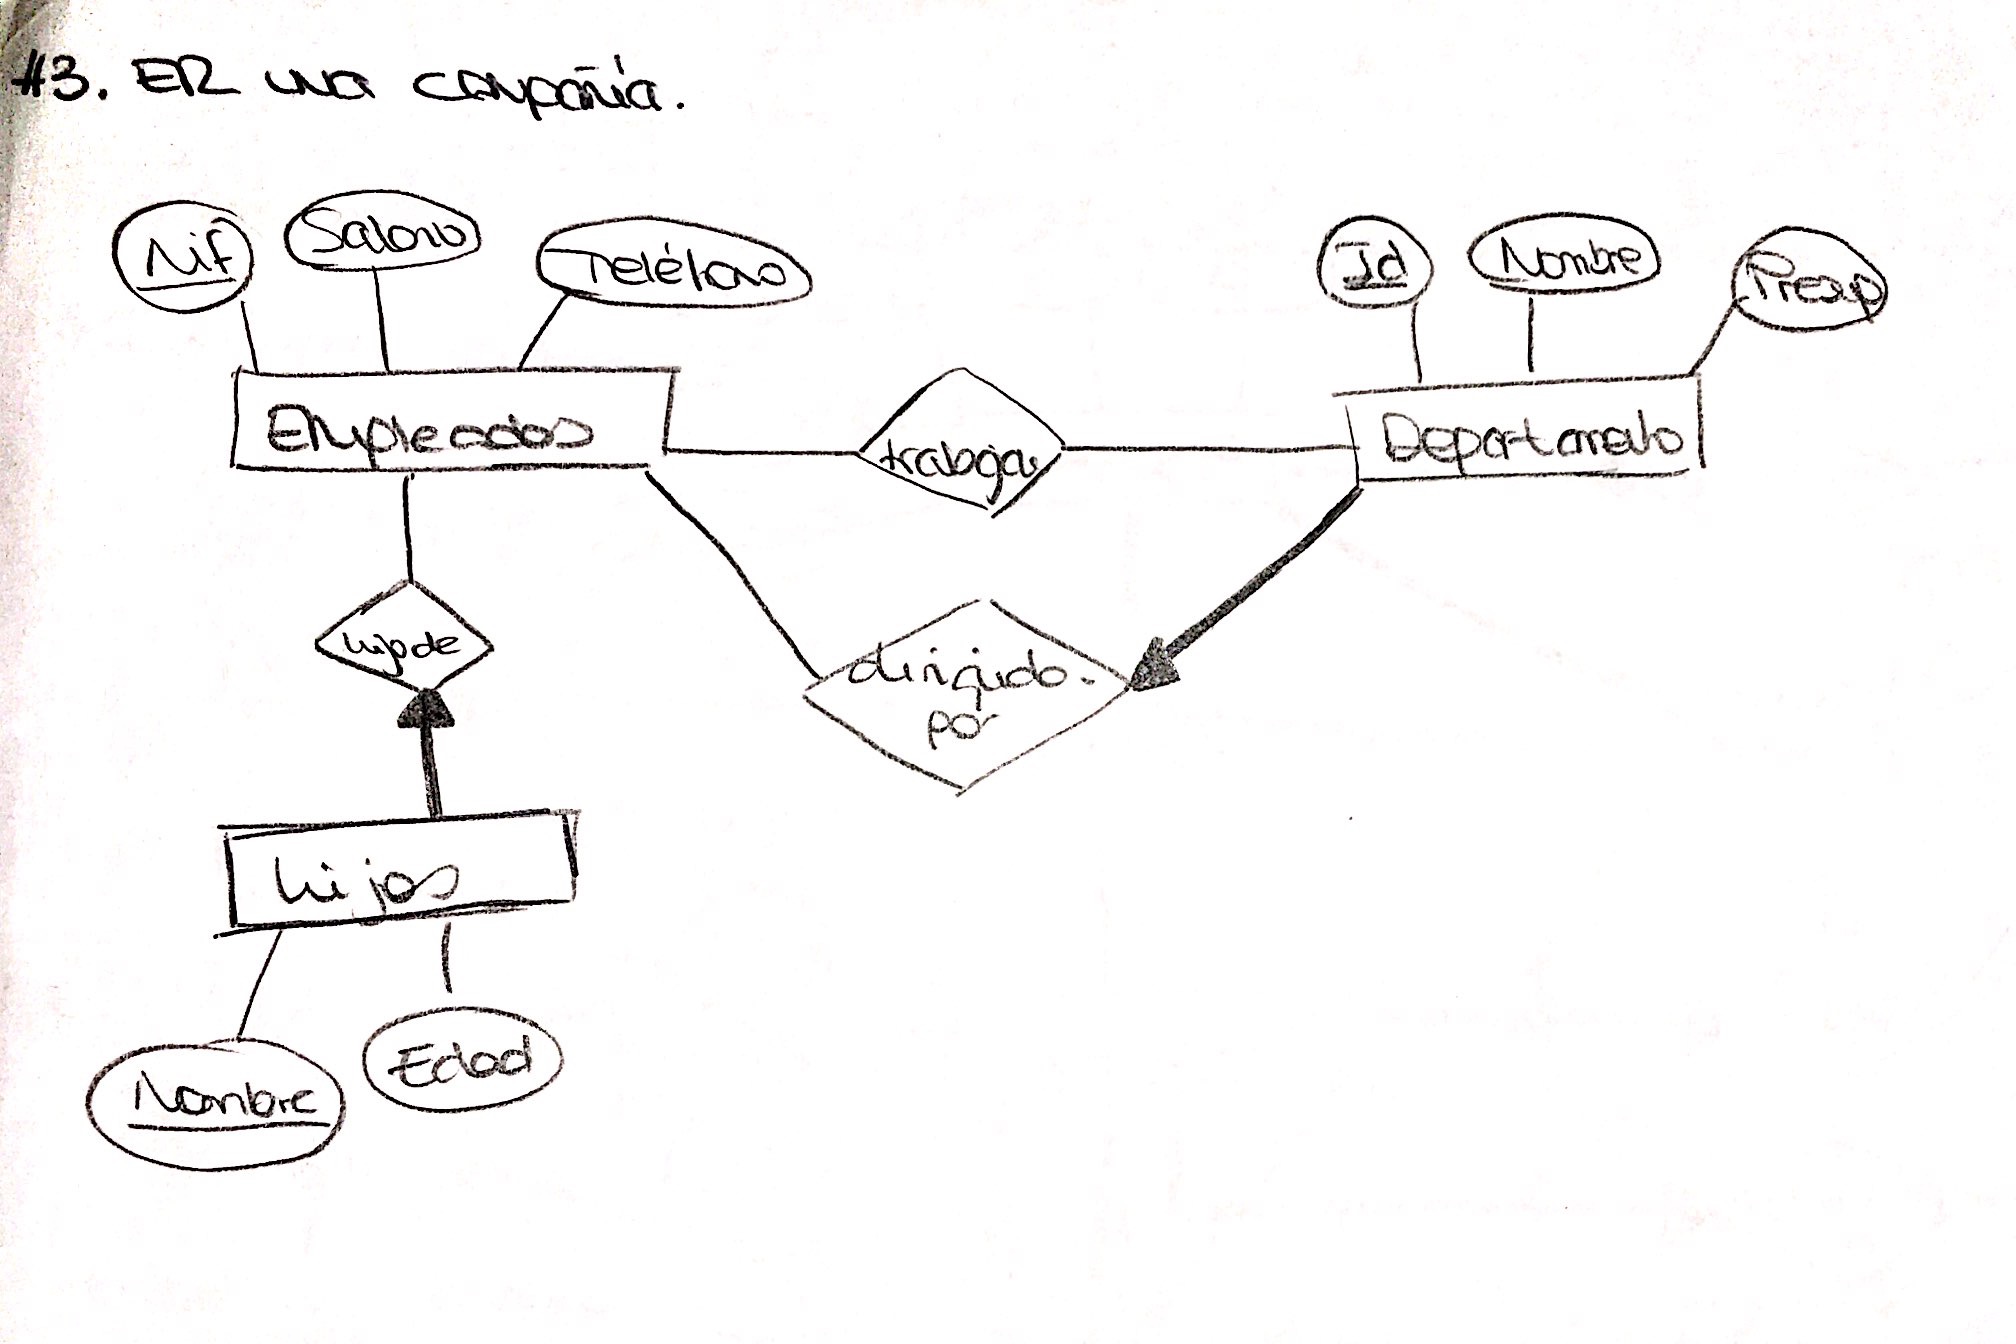 #3. ER una compañía.
Nif
Salario
Teléfono
Id
Nombre
Presup
Empleados
trabaja
Departamento
hijo de
dirigido
por
hijos
Nombre
Edad